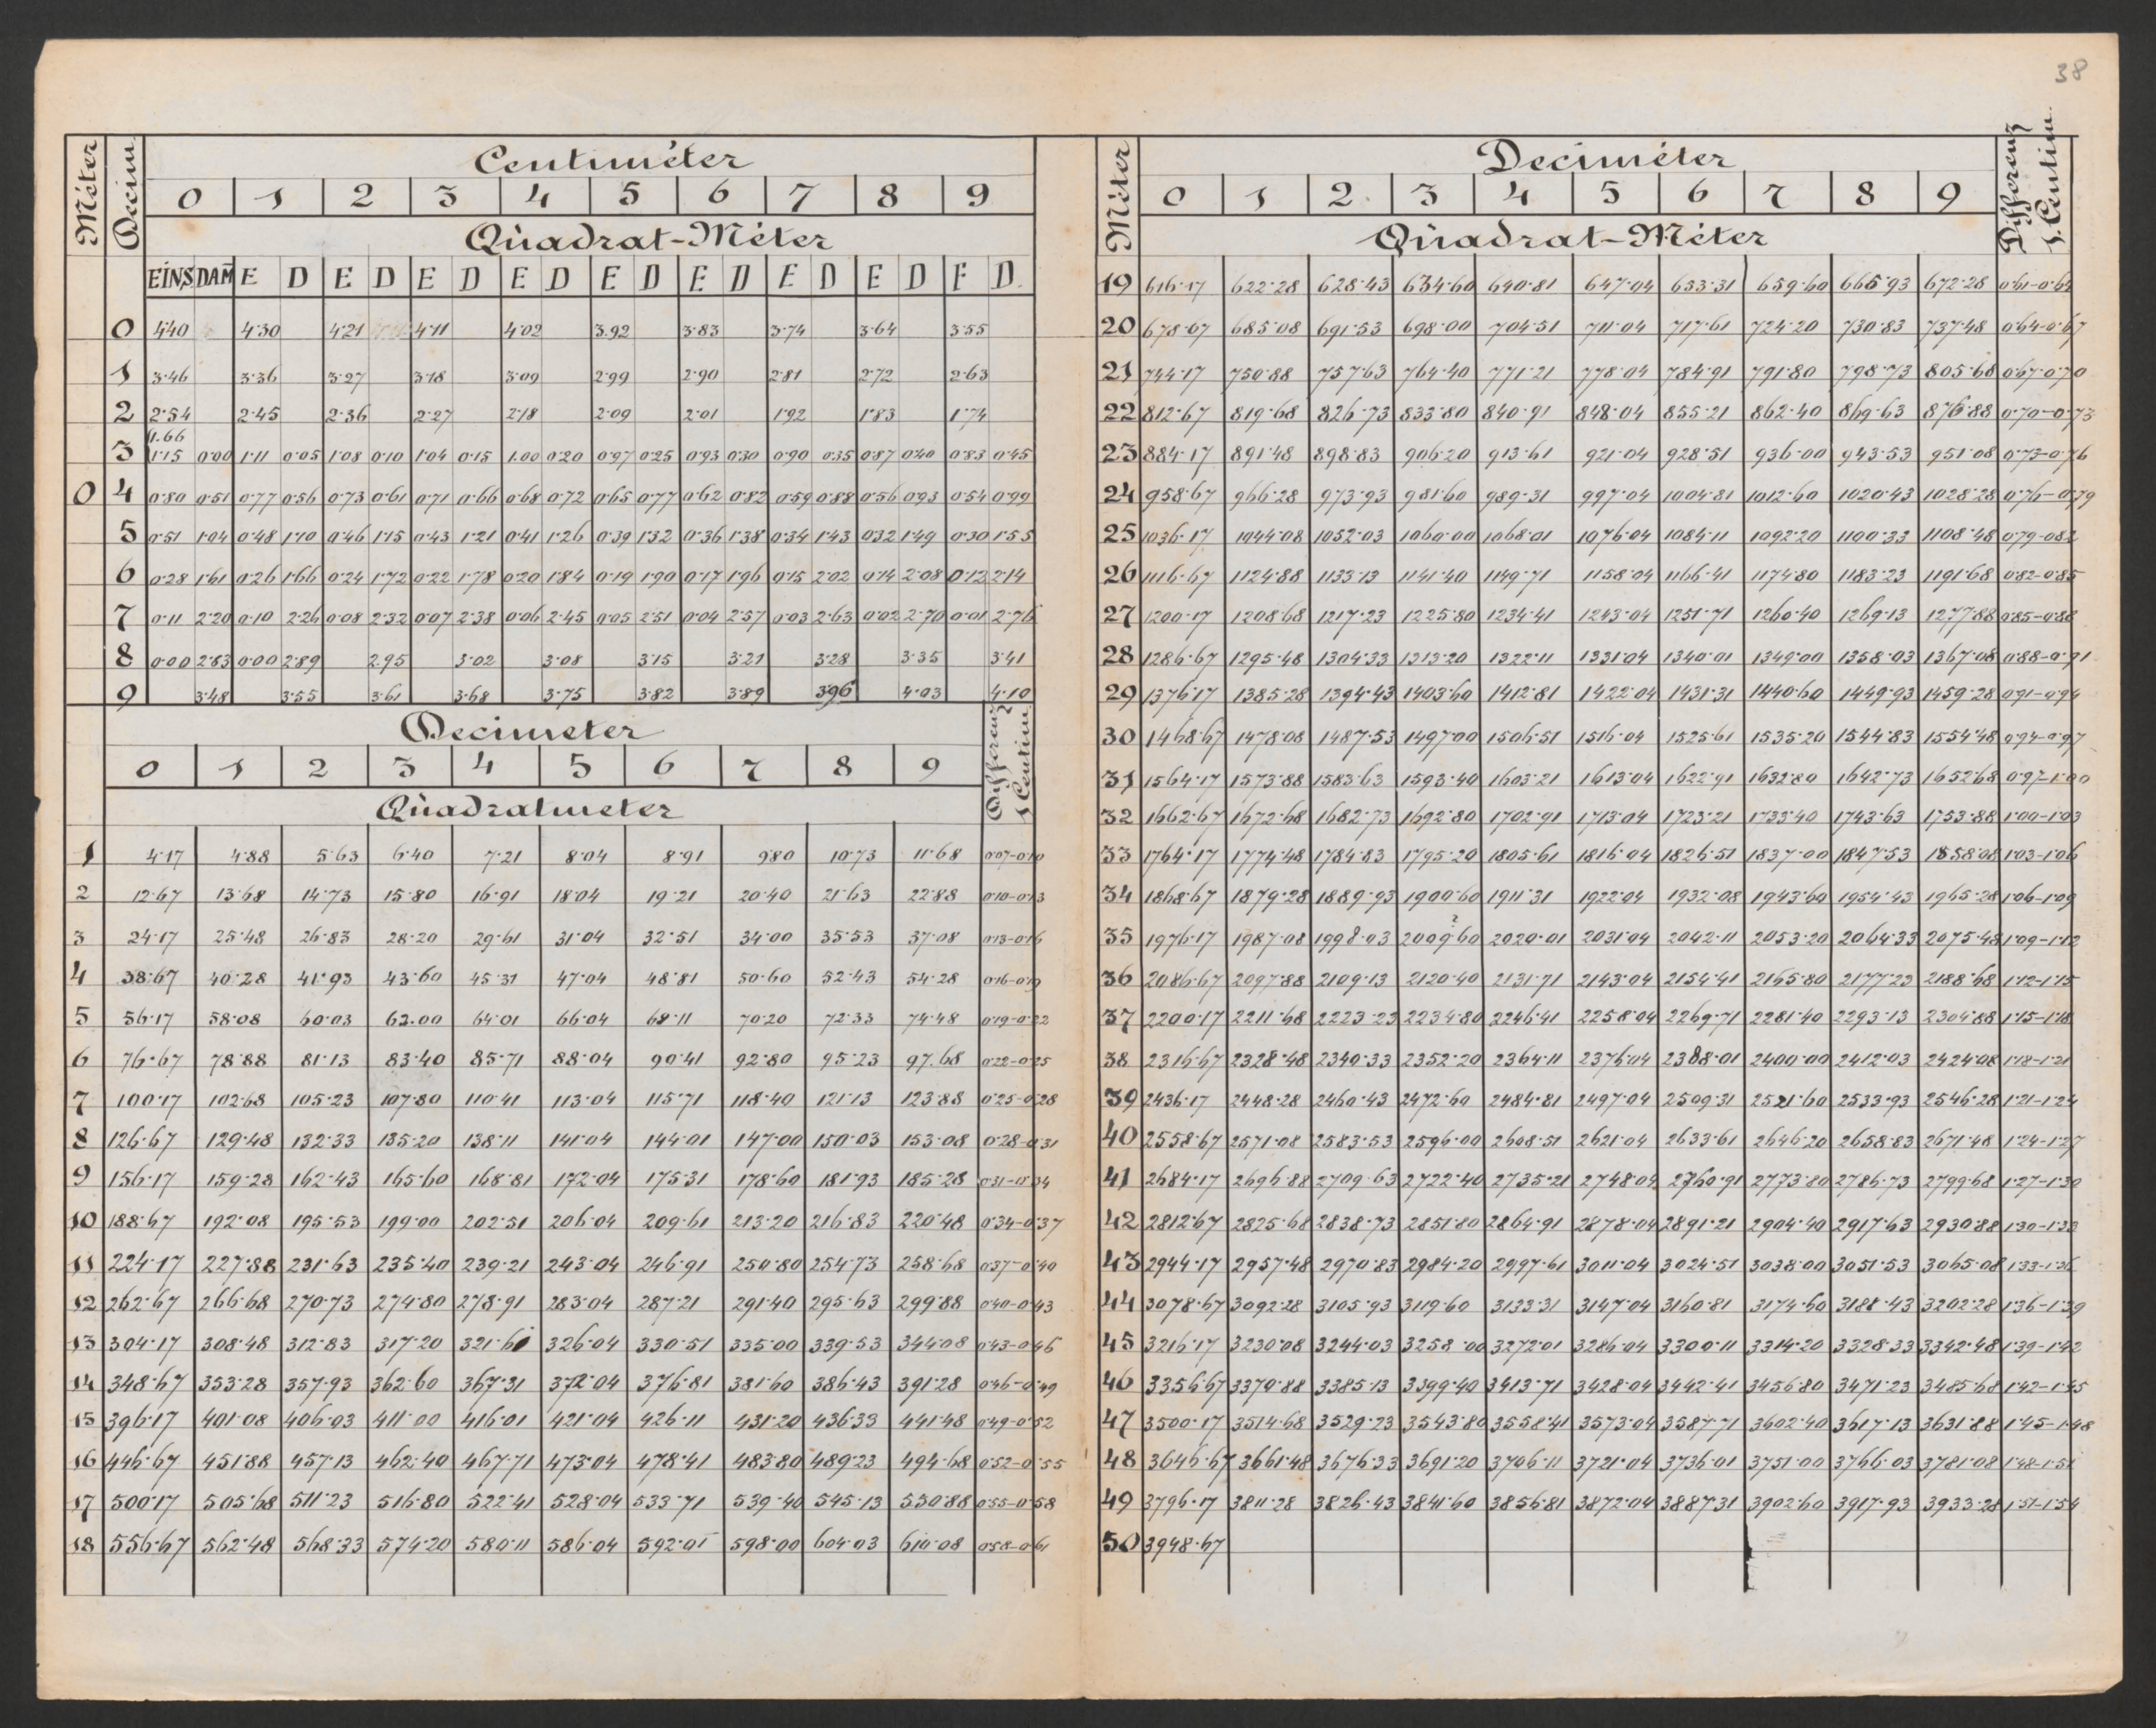 38
Méter Decim. Centiméter
0 1 2 3 4 5 6 7 8 9
Quadrat-Méter
EINS DAM E D E D E D E D E D E D E D E D E D
0 4·40 4·30 4·21 4·11 4·02 3.92 3·83 3·74 3·64 3·55
1 3·46 3·36 3·27 3·18 3·09 2·99 2·90 2·81 2·72 2·63
2 2·54 2·45 2·36 2·27 2·18 2·09 2·01 1·92 1·83 1·74
1.66
3 1·15 0·00 1·11 0·05 1·08 0·10 1·04 0·15 1.00 0·20 0·97 0·25 0·93 0·30 0·90 0·35 0·87 0·40 0·83 0·45
0 4 0·80 0·51 0·77 0·56 0·73 0·61 0·71 0·66 0·68 0·72 0·65 0·77 0·62 0·82 0·59 0·88 0·56 0·93 0·54 0·99
5 0·51 1·04 0·48 1·10 0·46 1·15 0·43 1·21 0·41 1·26 0·39 1·32 0·36 1·38 0·34 1·43 0·32 1·49 0·30 1·55
6 0·28 1·61 0·26 1·66 0·24 1·72 0·22 1·78 0·20 1·84 0·19 1·90 0·17 1·96 0·15 2·02 0·14 2·08 0·12 2·14
7 0·11 2·20 0·10 2·26 0·08 2·32 0·07 2·38 0·06 2·45 0·05 2·51 0·04 2·57 0·03 2·63 0·02 2·70 0·01 2·76
8 0·00 2·83 0·00 2·89 2.95 3·02 3·08 3·15 3·21 3·28 3·35 3·41
9 3·48 3·55 3·61 3·68 3·75 3·82 3·89 3·96 4·03 4·10
Decimeter Differenz 1 Centim.
0 1 2 3 4 5 6 7 8 9
Quadratmeter
1 4·17 4·88 5·63 6·40 7·21 8·04 8·91 9·80 10·73 11·68 0·07-0·10
2 12·67 13·68 14·73 15·80 16·91 18·04 19·21 20·40 21·63 22·88 0·10-0·13
3 24·17 25·48 26·83 28·20 29·61 31·04 32·51 34·00 35·53 37·08 0·13-0·16
4 38·67 40·28 41·93 43·60 45·31 47·04 48·81 50·60 52·43 54·28 0·16-0·19
5 56·17 58·08 60·03 62.00 64·01 66·04 68·11 70·20 72·33 74·48 0·19-0·22
6 76·67 78·88 81·13 83·40 85·71 88·04 90·41 92·80 95·23 97.68 0·22-0·25
7 100·17 102·68 105·23 107·80 110·41 113·04 115·71 118·40 121·13 123·88 0·25-0·28
8 126·67 129·48 132·33 135·20 138·11 141·04 144·01 147·00 150·03 153·08 0·28-0·31
9 156·17 159·28 162·43 165·60 168·81 172·04 175·31 178·60 181·93 185·28 0·31-0·34
10 188·67 192·08 195·53 199·00 202·51 206·04 209·61 213·20 216·83 220·48 0·34-0·37
11 224·17 227·88 231·63 235·40 239·21 243·04 246·91 250·80 254·73 258·68 0·37-0·40
12 262·67 266·68 270·73 274·80 278·91 283·04 287·21 291·40 295·63 299·88 0·40-0·43
13 304·17 308·48 312·83 317·20 321·61 326·04 330·51 335·00 339·53 344·08 0·43-0·46
14 348·67 353·28 357·93 362·60 367·31 372·04 376·81 381·60 386·43 391·28 0·46-0·49
15 396·17 401·08 406·03 411·00 416·01 421·04 426·11 431·20 436·33 441·48 0·49-0·52
16 446·67 451·88 457·13 462·40 467·71 473·04 478·41 483·80 489·23 494·68 0·52-0·55
17 500·17 505·68 511·23 516·80 522·41 528·04 533·71 539·40 545·13 550·88 0·55-0·58
18 556·67 562·48 568·33 574·20 580·11 586·04 592·01 598·00 604·03 610·08 0·58-0·61
Méter Deciméter Differenz 1. Centim.
0 1 2. 3 4 5 6 7 8 9
Quadrat-Méter
19 616·17 622·28 628·43 634·60 640·81 647·04 653·31 659·60 665·93 672·28 0·61-0·64
20 678·67 685·08 691·53 698·00 704·51 711·04 717·61 724·20 730·83 737·48 0·64-0·67
21 744·17 750·88 757·63 764·40 771·21 778·04 784·91 791·80 798·73 805·68 0·67-0·70
22 812·67 819·68 826·73 833·80 840·91 848·04 855·21 862·40 869·63 876·88 0·70-0·73
23 884·17 891·48 898·83 906·20 913·61 921·04 928·51 936·00 943·53 951·08 0·73-0·76
24 958·67 966·28 973·93 981·60 989·31 997·04 1004·81 1012·60 1020·43 1028·28 0·76-0·79
25 1036·17 1044·08 1052·03 1060·00 1068·01 1076·04 1084·11 1092·20 1100·33 1108·48 0·79-0·82
26 1116·67 1124·88 1133·13 1141·40 1149·71 1158·04 1166·41 1174·80 1183·23 1191·68 0·82-0·85
27 1200·17 1208·68 1217·23 1225·80 1234·41 1243·04 1251·71 1260·40 1269·13 1277·88 0·85-0·88
28 1286·67 1295·48 1304·33 1313·20 1322·11 1331·04 1340·01 1349·00 1358·03 1367·08 0·88-0·91
29 1376·17 1385·28 1394·43 1403·60 1412·81 1422·04 1431·31 1440·60 1449·93 1459·28 0·91-0·94
30 1468·67 1478·08 1487·53 1497·00 1506·51 1516·04 1525·61 1535·20 1544·83 1554·48 0·94-0·97
31 1564·17 1573·88 1583·63 1593·40 1603·21 1613·04 1622·91 1632·80 1642·73 1652·68 0·97-1·00
32 1662·67 1672·68 1682·73 1692·80 1702·91 1713·04 1723·21 1733·40 1743·63 1753·88 1·00-1·03
33 1764·17 1774·48 1784·83 1795·20 1805·61 1816·04 1826·51 1837·00 1847·53 1858·08 1·03-1·06
34 1868·67 1879·28 1889·93 1900·60 1911·31 1922·04 1932·08 1943·60 1954·43 1965·28 1·06-1·09
?
35 1976·17 1987·08 1998·03 2009·60 2020·01 2031·04 2042·11 2053·20 2064·33 2075·48 1·09-1·12
36 2086·67 2097·88 2109·13 2120·40 2131·71 2143·04 2154·41 2165·80 2177·23 2188·68 1·12-1·15
37 2200·17 2211·68 2223·23 2234·80 2246·41 2258·04 2269·71 2281·40 2293·13 2304·88 1·15-1·18
38 2316·67 2328·48 2340·33 2352·20 2364·11 2376·04 2388·01 2400·00 2412·03 2424·08 1·18-1·21
39 2436·17 2448·28 2460·43 2472·60 2484·81 2497·04 2509·31 2521·60 2533·93 2546·28 1·21-1·24
40 2558·67 2571·08 2583·53 2596·00 2608·51 2621·04 2633·61 2646·20 2658·83 2671·48 1·24-1·27
41 2684·17 2696·88 2709·63 2722·40 2735·21 2748·04 2760·91 2773·80 2786·73 2799·68 1·27-1·30
42 2812·67 2825·68 2838·73 2851·80 2864·91 2878·04 2891·21 2904·40 2917·63 2930·88 1·30-1·33
43 2944·17 2957·48 2970·83 2984·20 2997·61 3011·04 3024·51 3038·00 3051·53 3065·08 1·33-1·36
44 3078·67 3092·28 3105·93 3119·60 3133·31 3147·04 3160·81 3174·60 3188·43 3202·28 1·36-1·39
45 3216·17 3230·08 3244·03 3258·00 3272·01 3286·04 3300·11 3314·20 3328·33 3342·48 1·39-1·42
46 3356·67 3370·88 3385·13 3399·40 3413·71 3428·04 3442·41 3456·80 3471·23 3485·68 1·42-1·45
47 3500·17 3514·68 3529·23 3543·80 3558·41 3573·04 3587·71 3602·40 3617·13 3631·88 1·45-1·48
48 3646·67 3661·48 3676·33 3691·20 3706·11 3721·04 3736·01 3751·00 3766·03 3781·08 1·48-1·51
49 3796·17 3811·28 3826·43 3841·60 3856·81 3872·04 3887·31 3902·60 3917·93 3933·28 1·51-1·54
50 3948·67